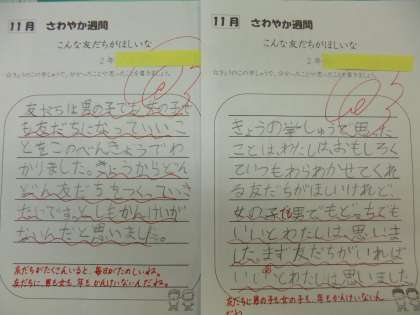 11月 さわやか週間
こんな友だちがほしいな
2年
友だちは男の子でも女の子で
も友だちになっていいこ
とをこのべんきょうでわ
かりました。きょうからどん
どん友だちをつくっていき
たいです。としもかんけいが
ないんだと思いました。
友だちがたくさんいると、毎日がたのしいね。
友だちに、男も女も、年もかんけいないんだね。
11月 さわやか週間
こんな友だちがほしいな
2年
きょうの学しゅうと思った
ことは、わたしは、おもしろく
ていつもわらわかせてくれ
る友だちがほしいけれど、
女の子でも男でもどっちでも
いいとわたしは思いま
した。まず友だちがいれば
いいとわたしは思いました
友だちに男の子も女の子も、年もかんけいないん
だね